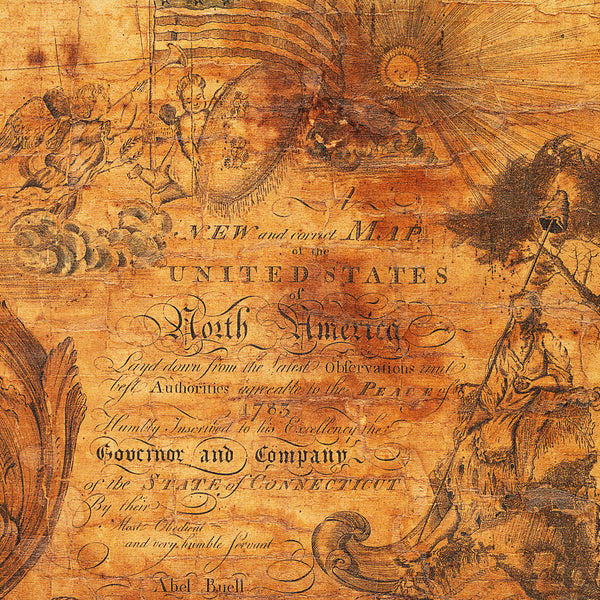 A
NEW and correct MAP
of the
UNITED STATES
of
North America
Layd down from the latest Observations and
best Authorities agreeable to the PEACE of
1783
Humbly Inscribed to his Excellency the
Governor and Company
of the STATE of CONNECTICUT
By their
Most Obedient
and very humble Servant
Abel Buell